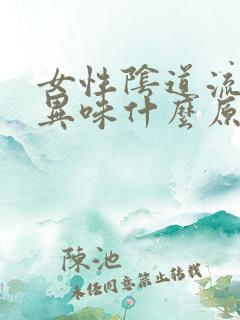 女性陰道流
異味什麼原
陳池
未經同意禁止轉載